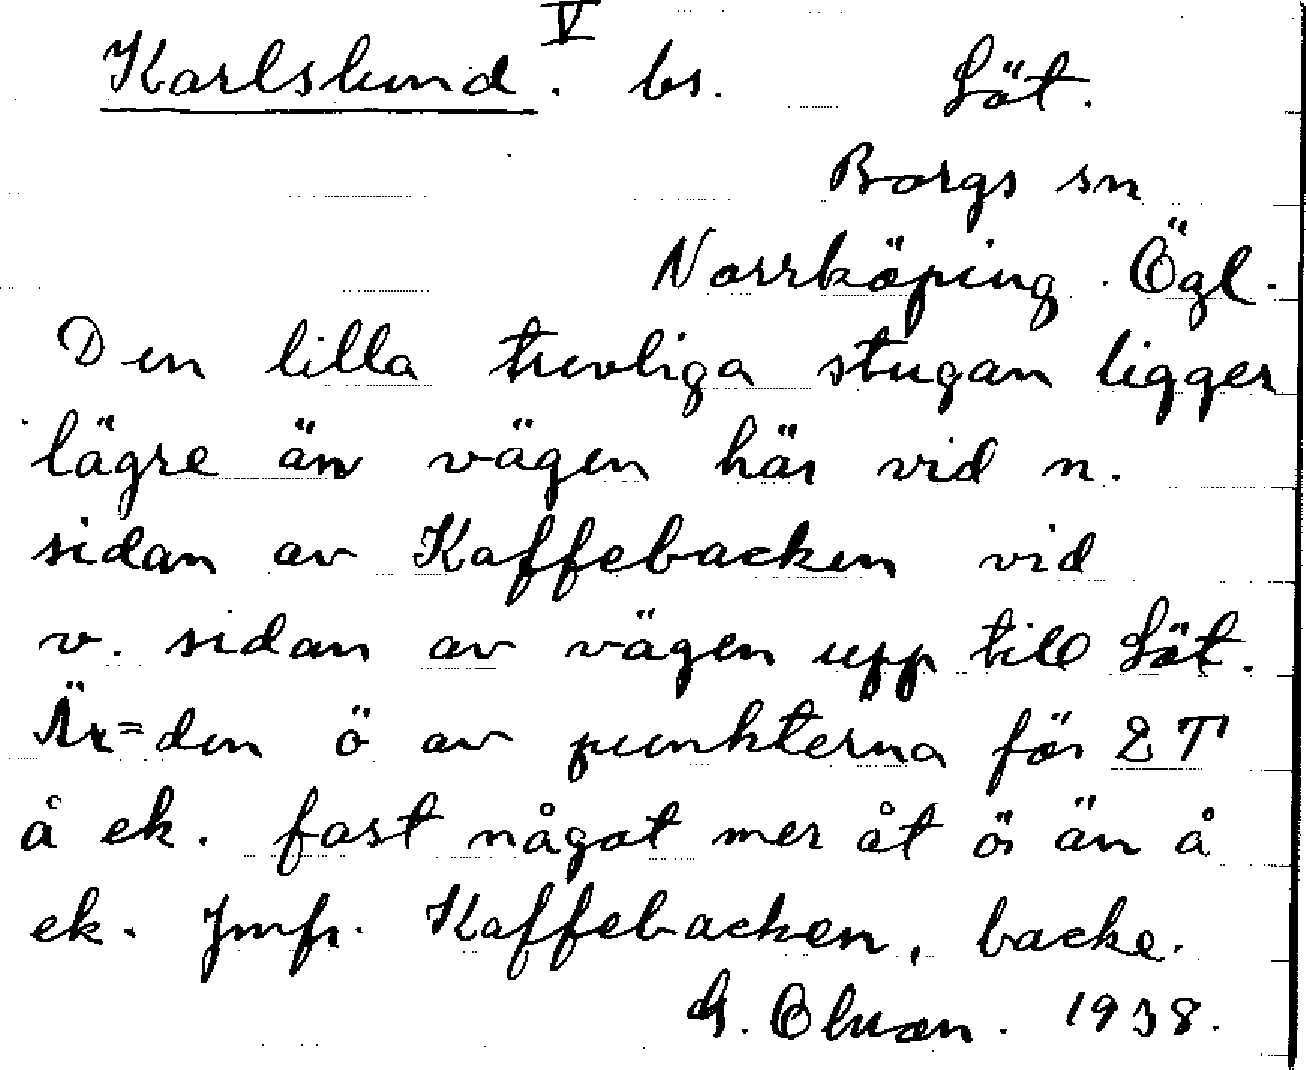 V
Karlslund. bs. Löt.
Borgs sn
Norrköping. Ögl.
Den lilla trevliga stugan ligger
lägre än vägen här vid n.
sidan av Kaffebacken vid
v. sidan av vägen upp till Löt.
Är=den ö av punkterna för 2 T
å ek. fast något mer åt ö än å
ek. Jmfr. Kaffebacken, backe.
G. 1938.